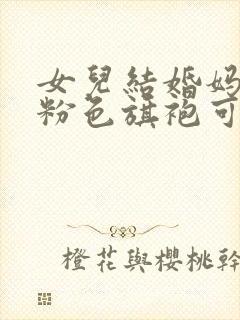 女兒結婚媽
粉色旗袍可
橙花與櫻桃幹